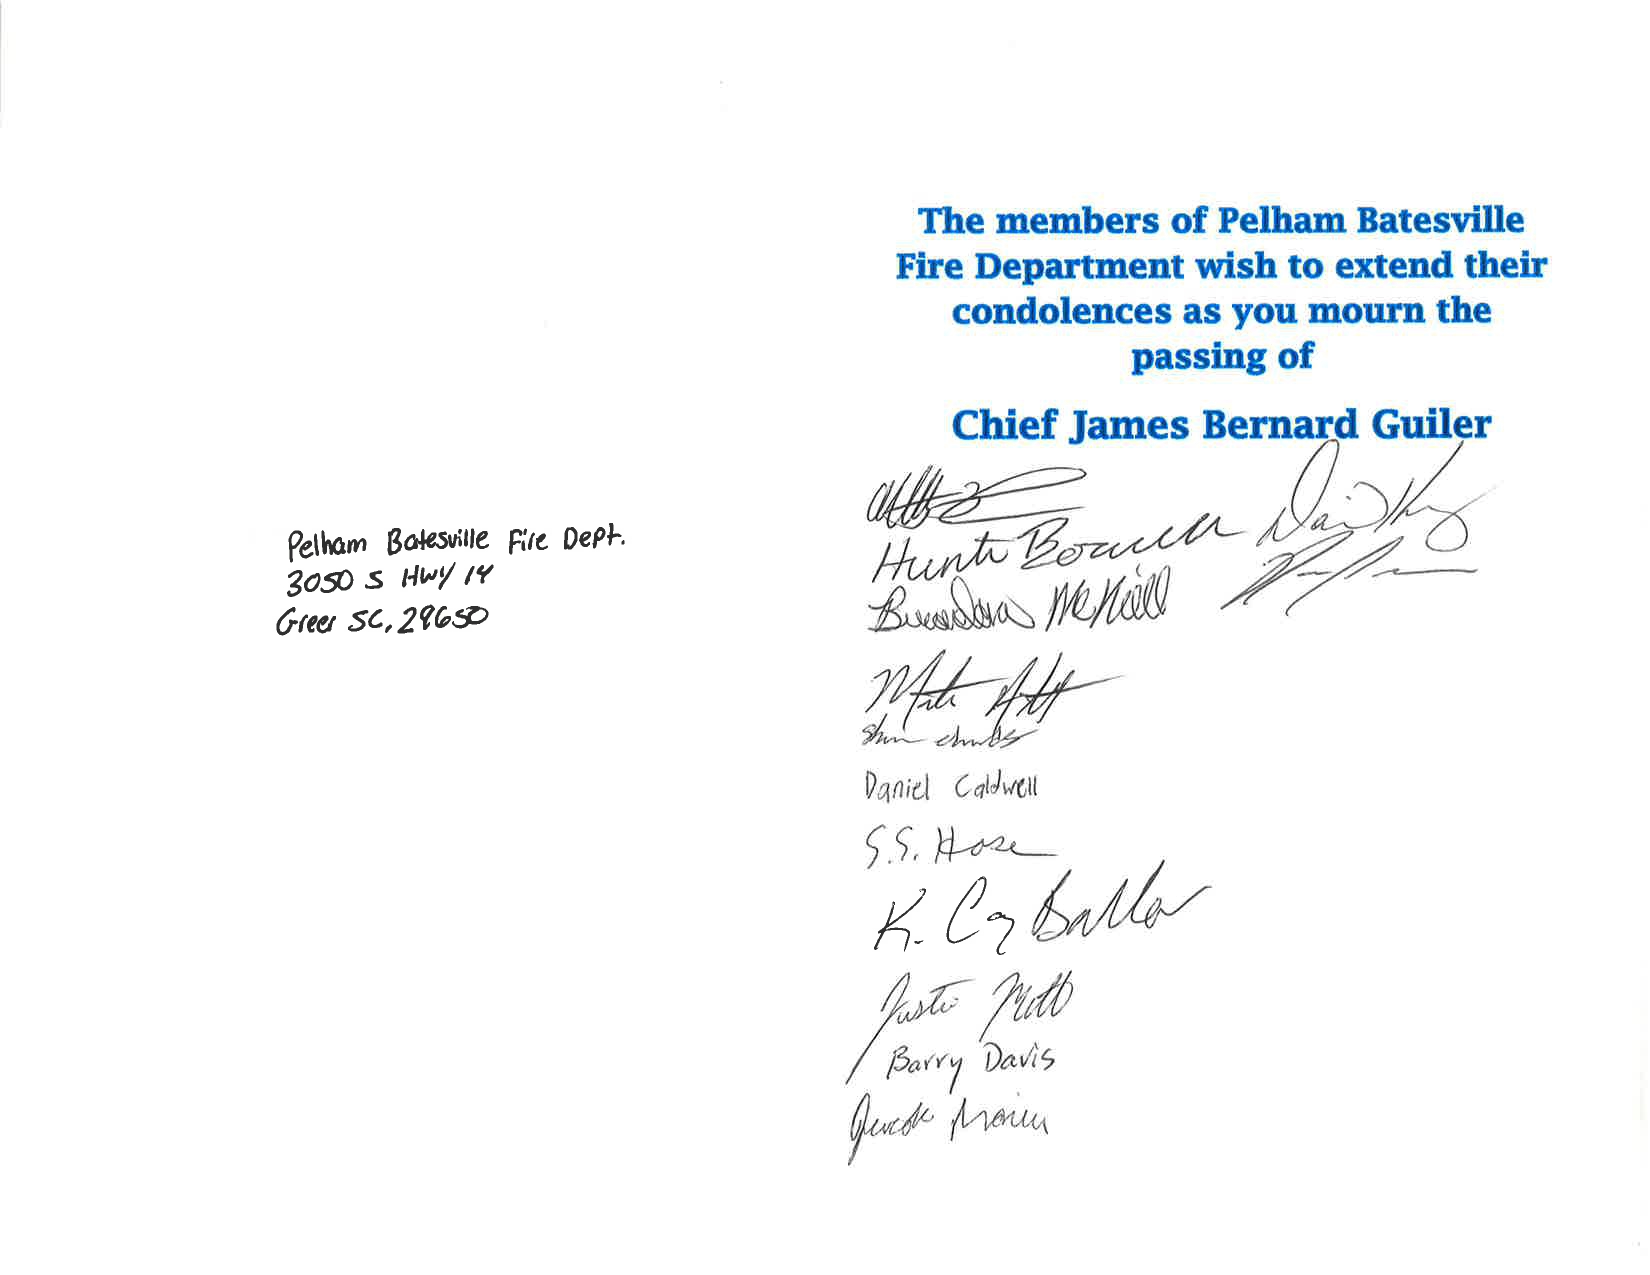 Pelham Batesville Fire Dept.
3050 S Hwy 14
Greer SC, 29650
The members of Pelham Batesville
Fire Department wish to extend their
condolences as you mourn the
passing of
Chief James Bernard Guiler
Hunter
Brandon McNeill
Daniel Caldwell
S.S. Hose
K.
Justin
Barry Davis